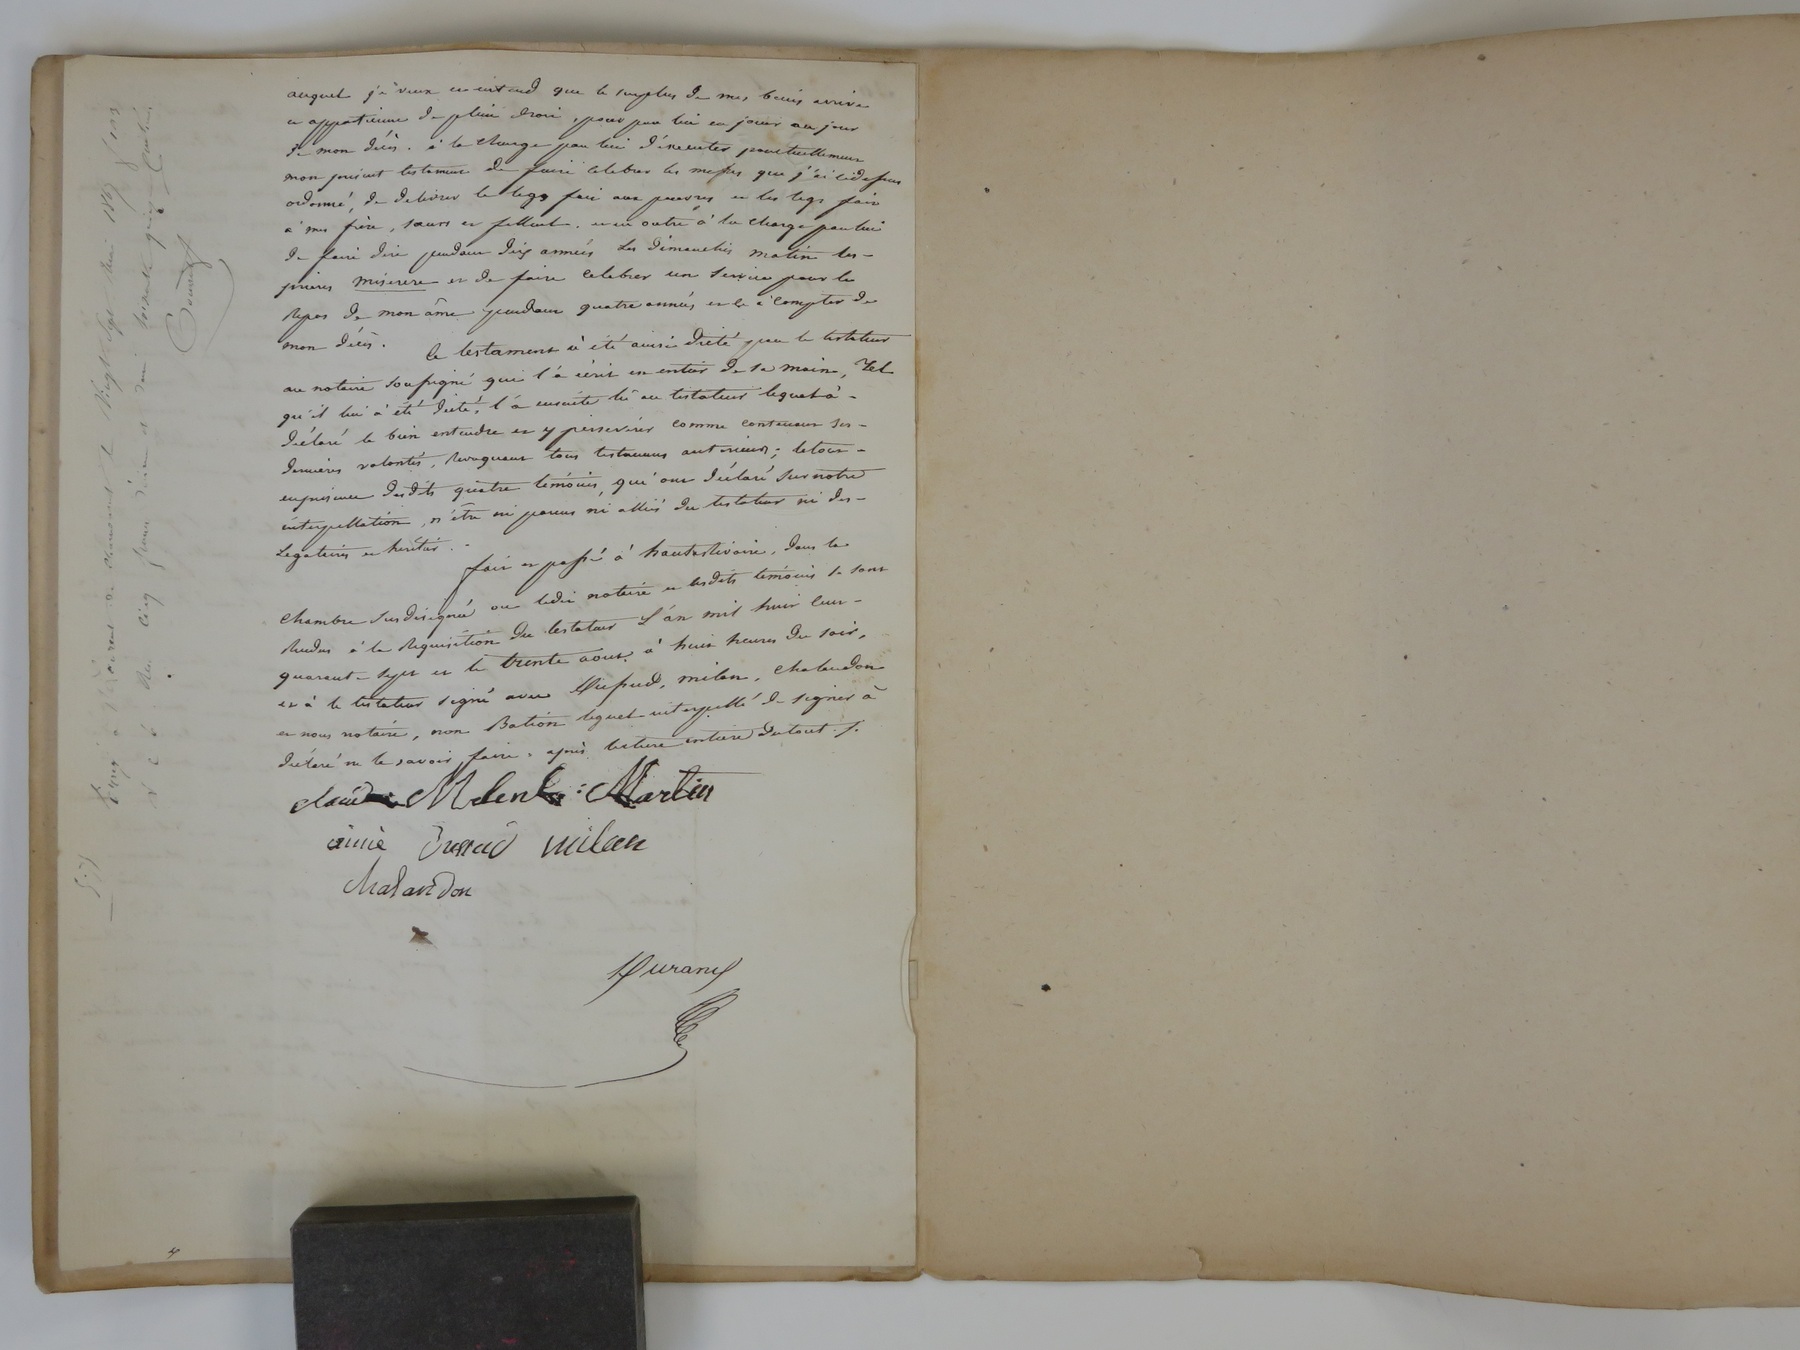 auquel je veux et entend que le surplus de mes biens arrive
et appartienne de plein droit, pour par lui en jouir au jour
de mon décès. à la charge par lui d'executer ponctuellement
mon present testament de faire celebrer les messes que j'ai cidessus
ordonné, de delivrer le legs fait aux pauvres et les legs fait
à mes frère, sœurs et filleul. et en outre à la charge par lui
de faire dire pendant dix années Les dimanches matin les-
prieres misérere et de faire celebrer un Service pour le
Repos de mon âme pendant quatre années et ce à compter de
mon décès. Ce testament à été ainsi dicté par le testateur
au notaire soussigné qui l'à écrit en entier de sa main, Tel
qu'il lui à été dicté, l'à ensuite lû au testateur lequel à-
déclaré le bien entendre et y persévérer comme contenant ses-
dernières volontés, Revoquant tous testamens anterieurs; le tout-
en presence desdits quatre temoins, qui ont déclaré Sur notre
interpellation, n'être ni parens ni alliés du testateur ni des-
Legataires et heritier.-
fait et passé à hauterivoire, dans la
Chambre Susdésignée ou ledit notaire et lesdits témoins se sont
Rendus à la Réquisition du testateur L'an mil huit cent-
quarante-sept et le trente aout, à huit heures du soir,
et à le testateur signé avec Dussud, milan, Chalandon
et nous notaire, non Bation lequel interpellé de signer à
déclaré ne le savoir faire, après lecture entiere du tout./.
claude Martin
aimé Dussud milan
Chalandon
Durand
Vingt sept mai 1849
Reçu cinq francs décime et demi soixante quinze Centimes